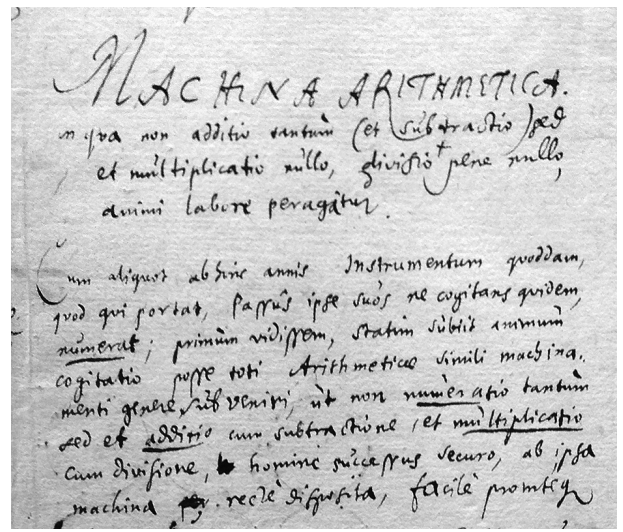 MACHINA ARITHMETICA.
in qva non additio tantùm (et subtractio) sed
et mùltiplicatio nùllo, divisio + pene nullo,
animi labore peragàtur.
Cum aliquot abhinc annis Instrumentum quoddam,
quod qui portat, passùs ipse sùos ne cogitans quidem,
numerat; primùm vidissem, statim sùbiit animum
cogitatio posse toti Arithmeticae simili machina-
menti genere subveniri, ùt non numeratio tantùm
sed et additio cum subtractione, et mùltiplicatio
cum divisione, homine sùccessus securo, ab ipsa
machina rectè disposita, facilè